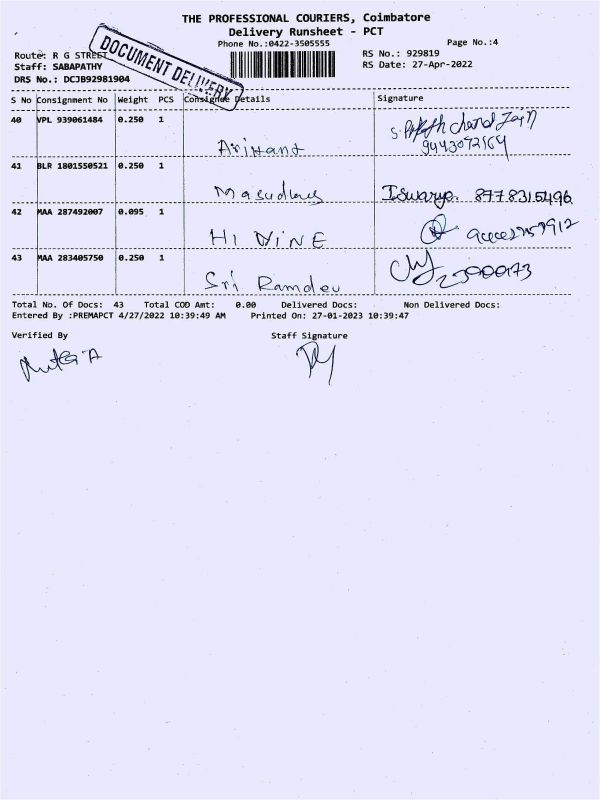 THE PROFESSIONAL COURIERS, Coimbatore
Delivery Runsheet - PCT
Phone No.:0422-3505555
Page No.:4
Route: R G STREET
RS No.: 929819
Staff: SABAPATHY
RS Date: 27-Apr-2022
DRS No.: DCJB92981904
DOCUMENT DELIVERY
S No Consignment No Weight PCS Consignee Details Signature
40 VPL 939061484 0.250 1
Arihant Chand Jain
9443072164
41 BLR 1801550521 0.250 1
Iswarya. 8778315496
42 MAA 287492007 0.095 1
HI NINE
43 MAA 283405750 0.250 1
Sri Ramdev
Total No. Of Docs: 43 Total COD Amt: 0.00 Delivered Docs: Non Delivered Docs:
Entered By :PREMAPCT 4/27/2022 10:39:49 AM Printed On: 27-01-2023 10:39:47
Verified By Staff Signature